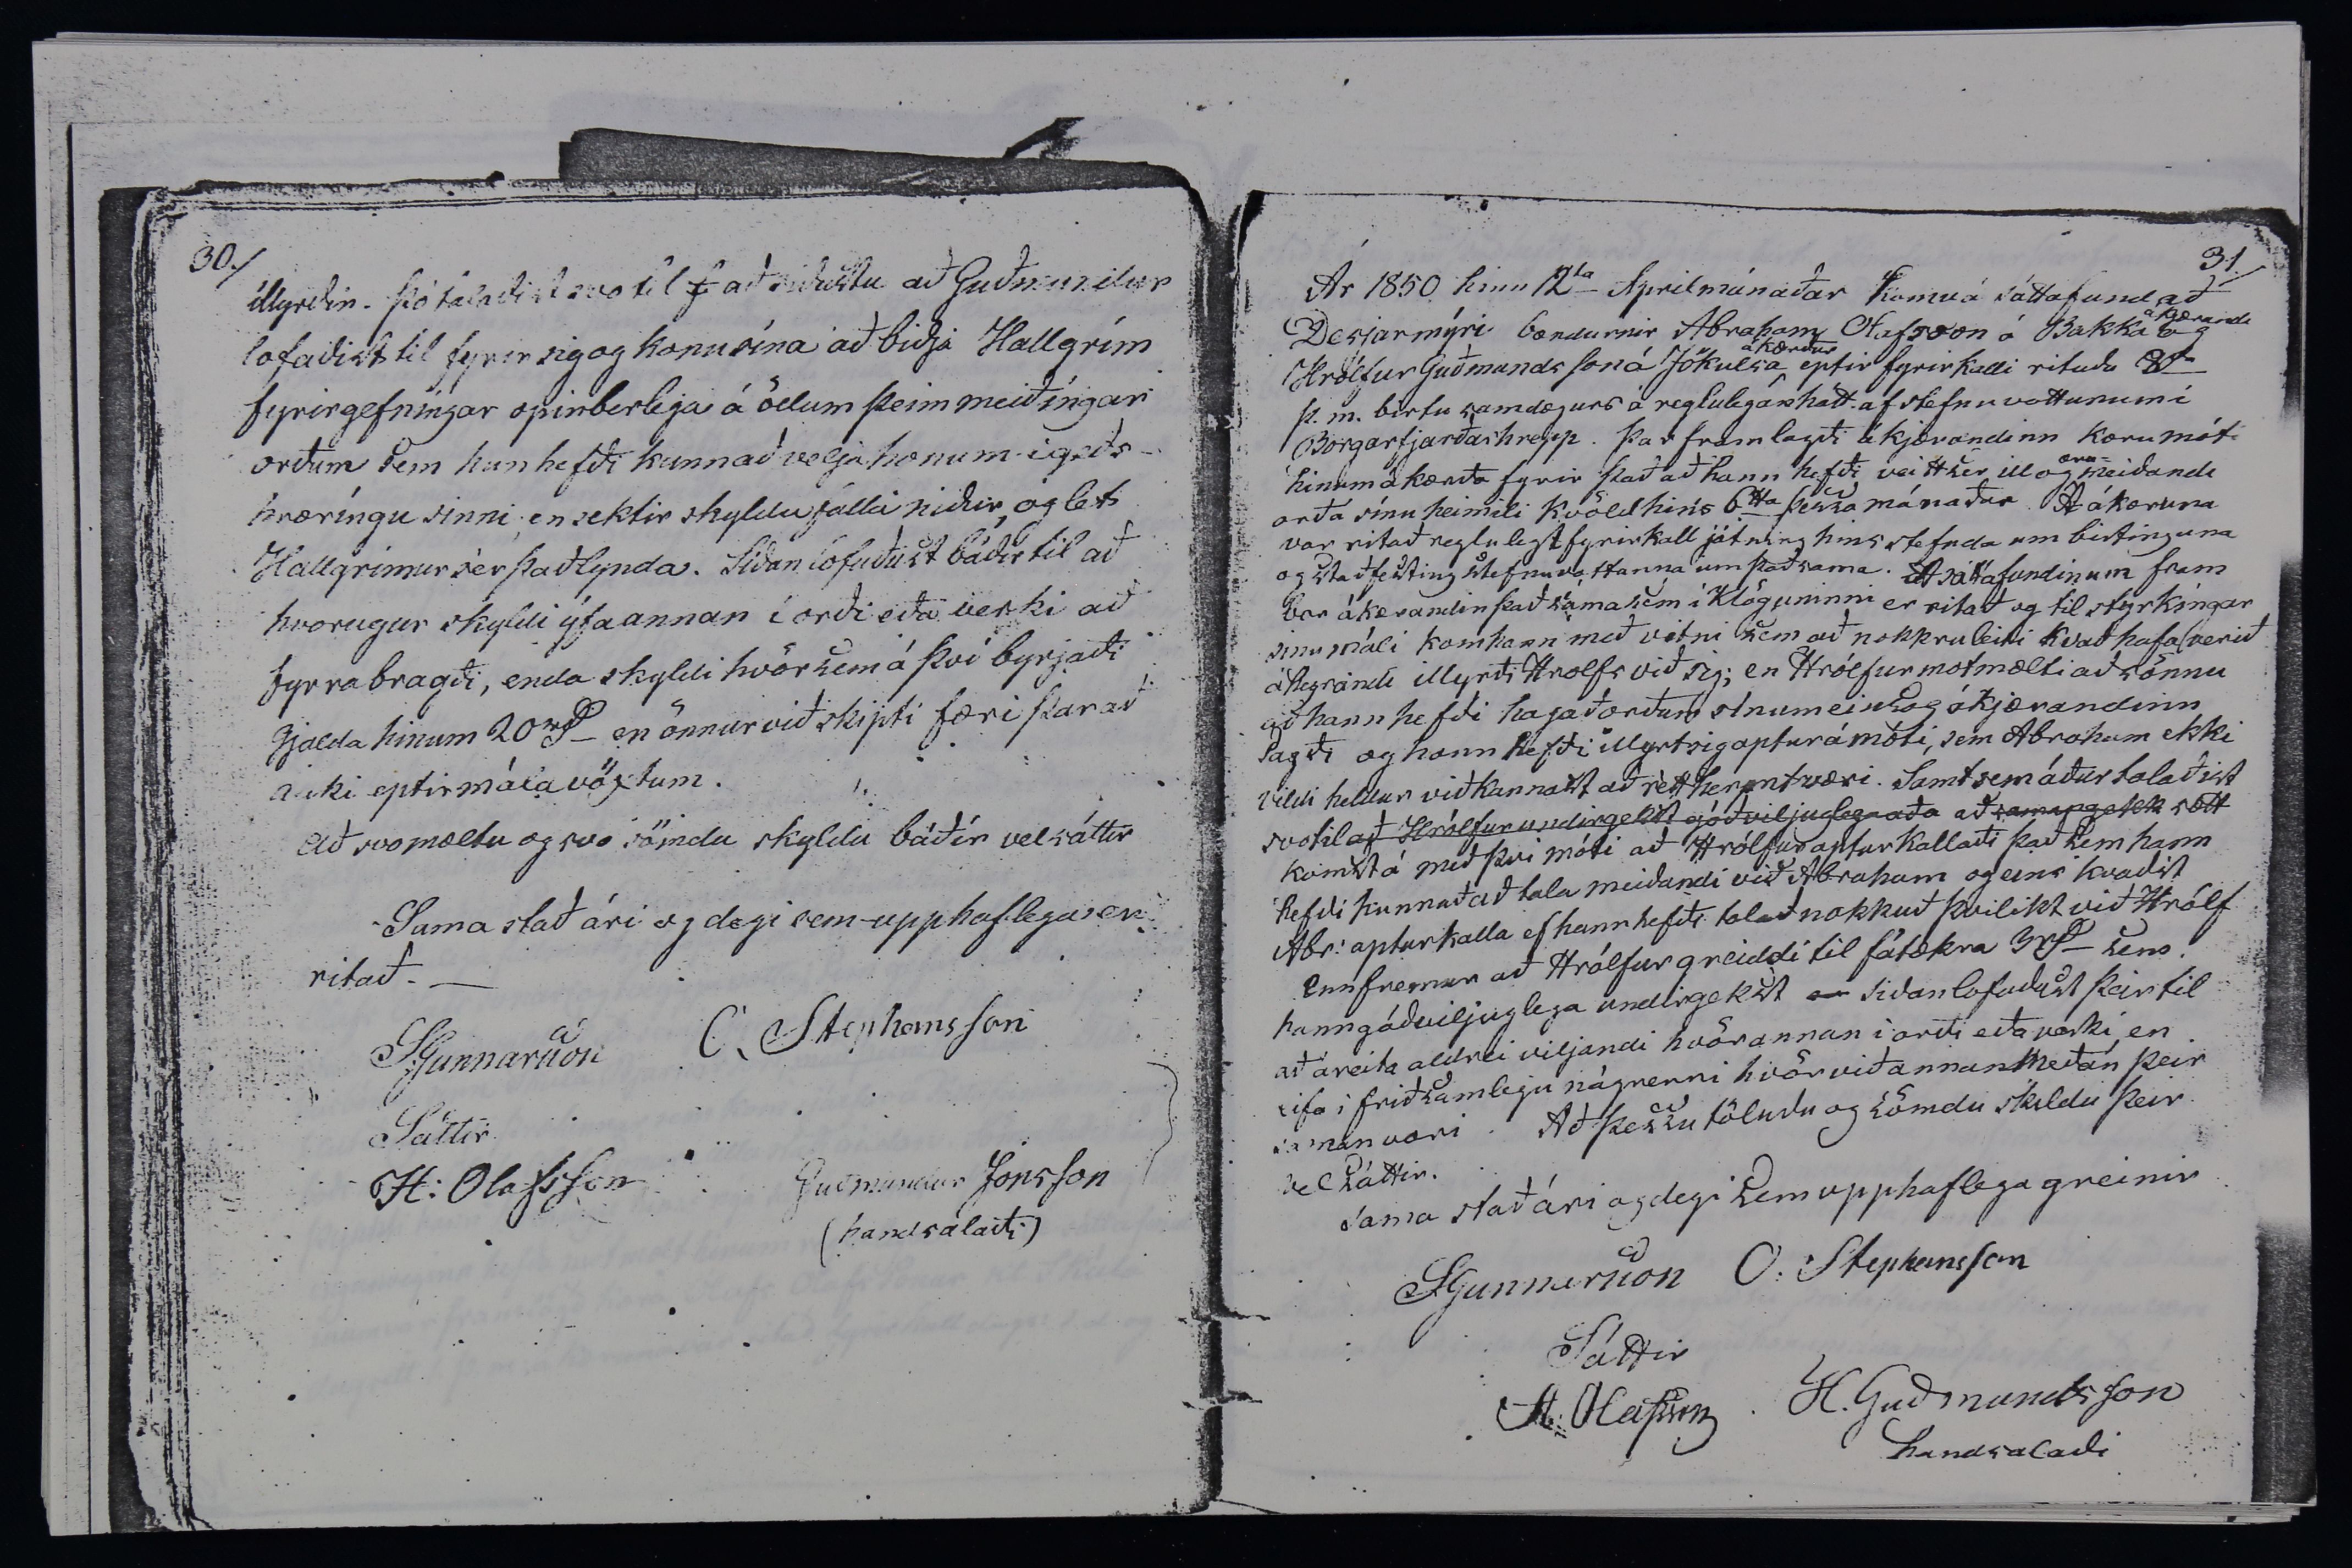 30./
illyrðin. Þó talaðist svo til að síðustu að Guðmundur
lofaðist til fyrir sig og konu sína að biðja Hallgrím
fyrirgefníngar opinberlega á öllum þeim meiðíngar
orðum sem hun hefði kunnað velja honum í geðs-
hræríngu sinni, en sektir skyldu falla niður, og let
Hallgrímur sér það lynda. Síðan lofuðust báðir til að
hvorugur skyldi ýfa annan í orði eða verki að
fyrra bragði, enda skyldi hvör sem á því byrjaði
gjalda hinum 20 rd en önnur viðskipti færi þar að
auki eptir mála vöxtum.
Að svo mæltu og svo sömdu skyldu báðir vel sáttir
Sama stað ári og degi sem upphaflega er
ritað. —
SGunnarsson O. Stephansson
Sáttir
H: Olafsson Guðmundur Jónsson
(handsalaði)
31/
Ár 1850 hinn 12ta Aprilmánaðar komu á sáttafund að
Desjarmýri bændurnir Abraham Olafsson á Bakka ákærandi og
Hrólfur Guðmundsson á Jökulsá ákærður eptir fyrirkalli rituðu 8da
þ. m. birtu samdægurs á reglulegan hátt af stefnuvottunum í
Borgarfjarðarhrepp. Þar framlagði ákjærandinn kæru móti
hinum ákærða fyrir það að hann hefði veitt sér ill og æru-meiðandi
orð á sínu heimili kvöld hins 6tta þessa mánaðar. A ákæruna
var ritað reglulegt fyrirkall játning hins stefnda um birtinguna
og staðfesting stefnuvottanna um það sama. A sáttafundinum fram
bar ákærandin það sama sem í klöguninni er ritað og til styrkíngar
sínu máli kom hann með vitni sem að nokkru leiti kvað hafa verið
áheyrandi illyrði Hrolfs við sig; en Hrólfur motmælti að sönnu
að hann hefði hagað orðum sínum eins og ákjærandinn
sagði og hann hefði illyrt sig aptur á móti, sem Abraham ekki
vildi heldur viðkannast að rétthermt væri. Samt sem áður talaðist
svo til að Hrólfur undirgekst góðviljuglega að sætt
komst á með því móti að Hrólfur apturkallaði það sem hann
hefði kunnað að tala meiðandi við Abraham og eins kvaðst
Abr: apturkalla ef hann hefði talað nokkuð þvílikt við Hrólf
ennfremur að Hrólfur greiddi til fátækra 3 rd sem
hann góðviljuglega undirgekst síðan lofuðust þeir til
að áreita aldrei viljandi hvör annan í orði eða verki, en
lifa í friðsamlegu nágrenni hvör við annan meðan þeir
saman væri. Að þessu töluðu og sömdu skildu þeir
vel sáttir.
Sama stað ári og degi sem upphaflega greinir
SGunnarsson O. Stephansson
Sáttir
A. Olafsson H. Guðmundsson
handsalaði